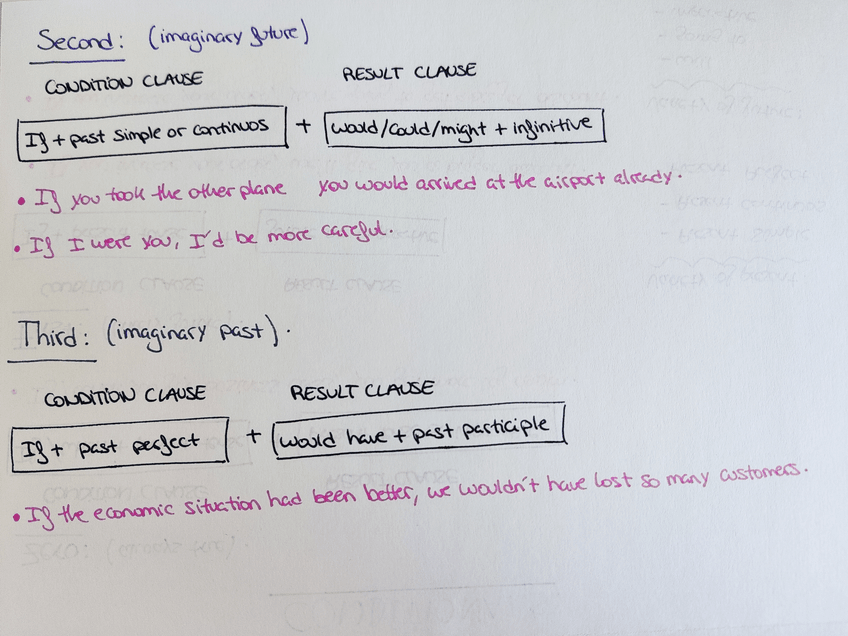 Second: (imaginary future)
CONDITION CLAUSE RESULT CLAUSE
If + past simple or continuos + would/could/might + infinitive
• If you took the other plane you would arrived at the airport already.
• If I were you, I'd be more careful.
Third: (imaginary past).
CONDITION CLAUSE RESULT CLAUSE
If + past perfect + would have + past participle
• If the economic situation had been better, we wouldn't have lost so many customers.